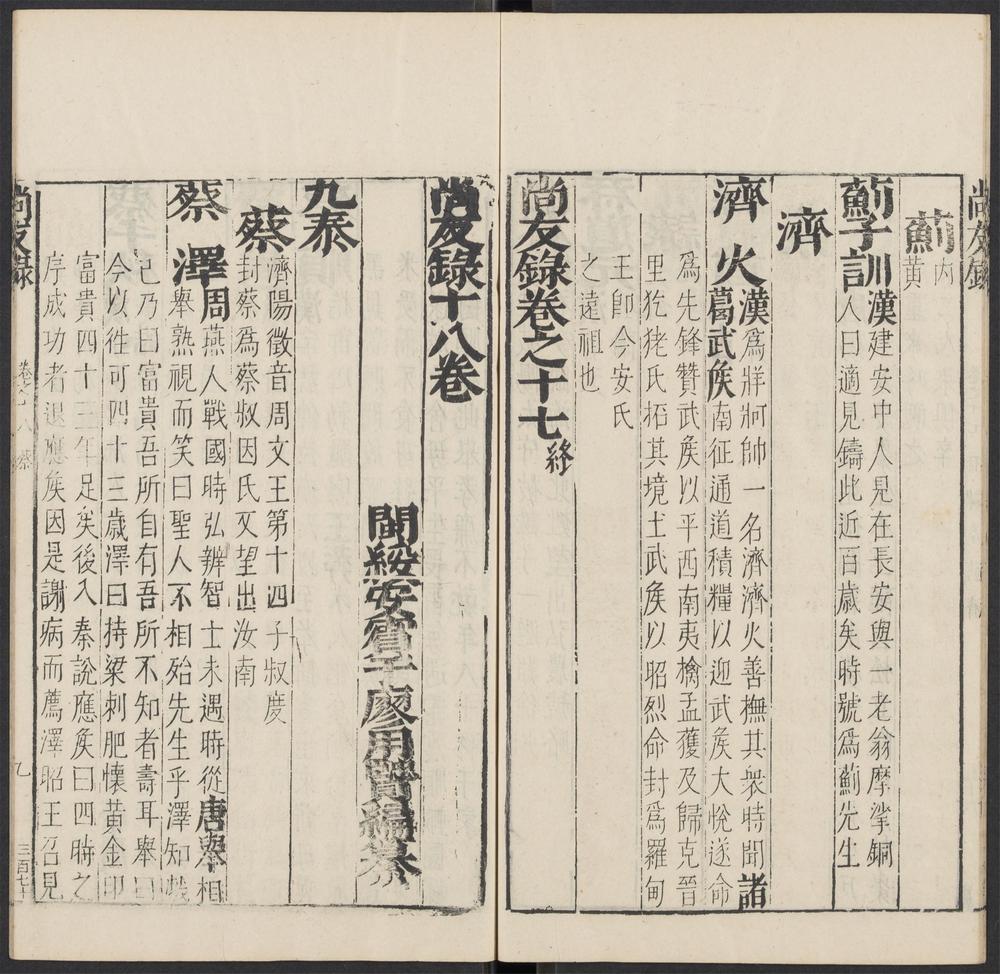 尚友錄
薊
內
黃
薊子訓漢建安中人人見在長安與一老翁摩挲銅
人曰適見鑄此近百歲矣時號為薊先生
濟
濟火漢為牂牁帥一名濟濟火善撫其衆時聞諸
葛武矦南征通道積糧以迎武矦大悅遂命
為先鋒贊武矦以平西南夷擒孟獲及歸克晉
里犵狫氏拓其境土武矦以昭烈命封為羅甸
王即今安氏
之遠祖也
尚友錄卷之十七終
尚友錄十八卷
閩綏安賓于廖用賢編纂
九泰
蔡
濟陽徵音周文王第十四子叔度
封蔡為蔡叔因氏又望出汝南
蔡澤周燕人戰國時弘辨智士未遇時從唐舉相
舉熟視而笑曰聖人不相殆先生乎澤知戲
已乃曰富貴吾所自有吾所不知者壽耳舉曰
今以徃可四十三歲澤曰持梁刺肥懷黃金印
富貴四十三年足矣後入秦說應矦曰四時之
序成功者退應矦因是謝病而薦澤昭王召見
尚友錄
卷之十八
蔡
九
三百七十